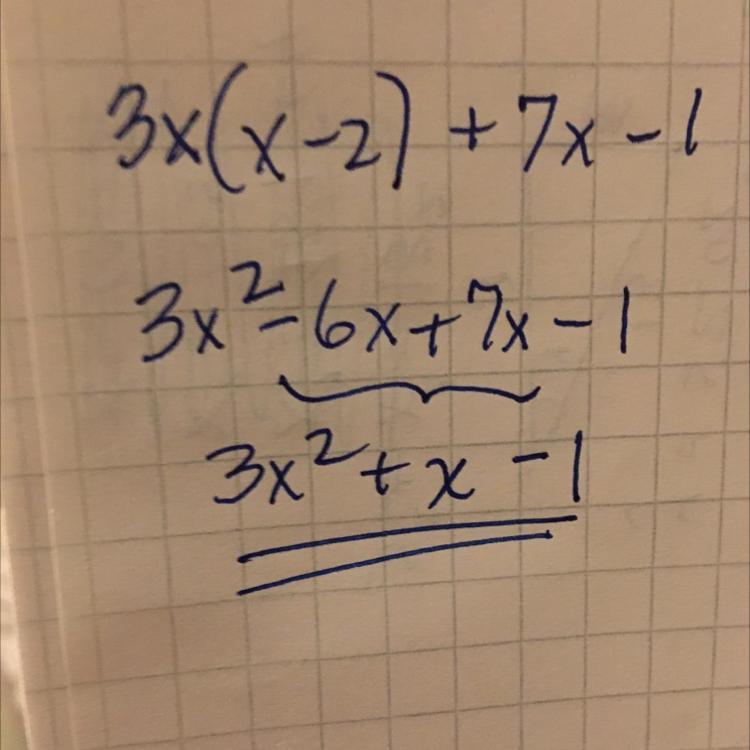 3x(x-2) + 7x - 1
3x² - 6x + 7x - 1
3x² + x - 1